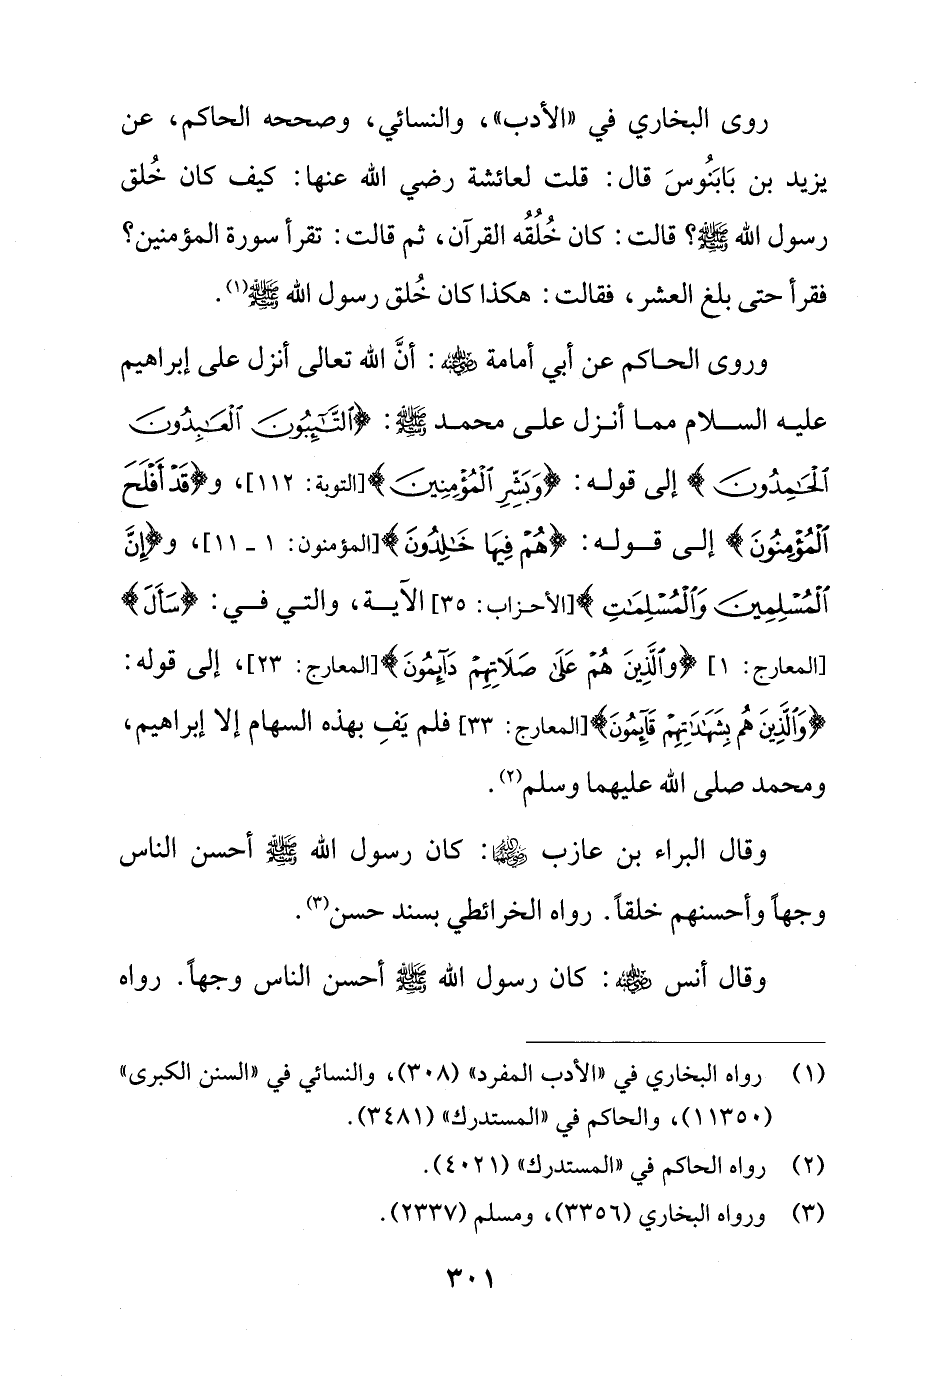 روى البخاري في «الأدب»، والنسائي، وصححه الحاكم، عن
يزيد بن بَابَنُوسَ قال: قلت لعائشة رضي الله عنها: كيف كان خُلق
رسول الله ﷺ؟ قالت: كان خُلُقُه القرآن، ثم قالت: تقرأ سورة المؤمنين؟
فقرأ حتى بلغ العشر، فقالت: هكذا كان خُلق رسول الله ﷺ(١).
وروى الحاكم عن أبي أمامة رضي الله عنه: أنَّ الله تعالى أنزل على إبراهيم
عليه السلام مما أنزل على محمد ﷺ: ﴿ٱلتَّٰٓئِبُونَ ٱلْعَٰبِدُونَ
ٱلْحَٰمِدُونَ﴾ إلى قوله: ﴿وَبَشِّرِ ٱلْمُؤْمِنِينَ﴾[التوبة: ١١٢]، و﴿قَدْ أَفْلَحَ
ٱلْمُؤْمِنُونَ﴾ إلى قوله: ﴿هُمْ فِيهَا خَٰلِدُونَ﴾[المؤمنون: ١ ـ ١١]، و﴿إِنَّ
ٱلْمُسْلِمِينَ وَٱلْمُسْلِمَٰتِ﴾[الأحزاب: ٣٥] الآية، والتي في: ﴿سَأَلَ﴾
[المعارج: ١] ﴿وٱلَّذِينَ هُمْ عَلَىٰ صَلَاتِهِمْ دَآئِمُونَ﴾[المعارج: ٢٣]، إلى قوله:
﴿وَٱلَّذِينَ هُم بِشَهَٰدَٰتِهِمْ قَآئِمُونَ﴾[المعارج: ٣٣] فلم يَفِ بهذه السهام إلا إبراهيم،
ومحمد صلى الله عليهما وسلم(٢).
وقال البراء بن عازب رضي الله عنهما: كان رسول الله ﷺ أحسن الناس
وجهاً وأحسنهم خلقاً. رواه الخرائطي بسند حسن(٣).
وقال أنس رضي الله عنه: كان رسول الله ﷺ أحسن الناس وجهاً. رواه
(١) رواه البخاري في «الأدب المفرد» (٣٠٨)، والنسائي في «السنن الكبرى»
(١١٣٥٠)، والحاكم في «المستدرك» (٣٤٨١).
(٢) رواه الحاكم في «المستدرك» (٤٠٢١).
(٣) ورواه البخاري (٣٣٥٦)، ومسلم (٢٣٣٧).
٣٠١